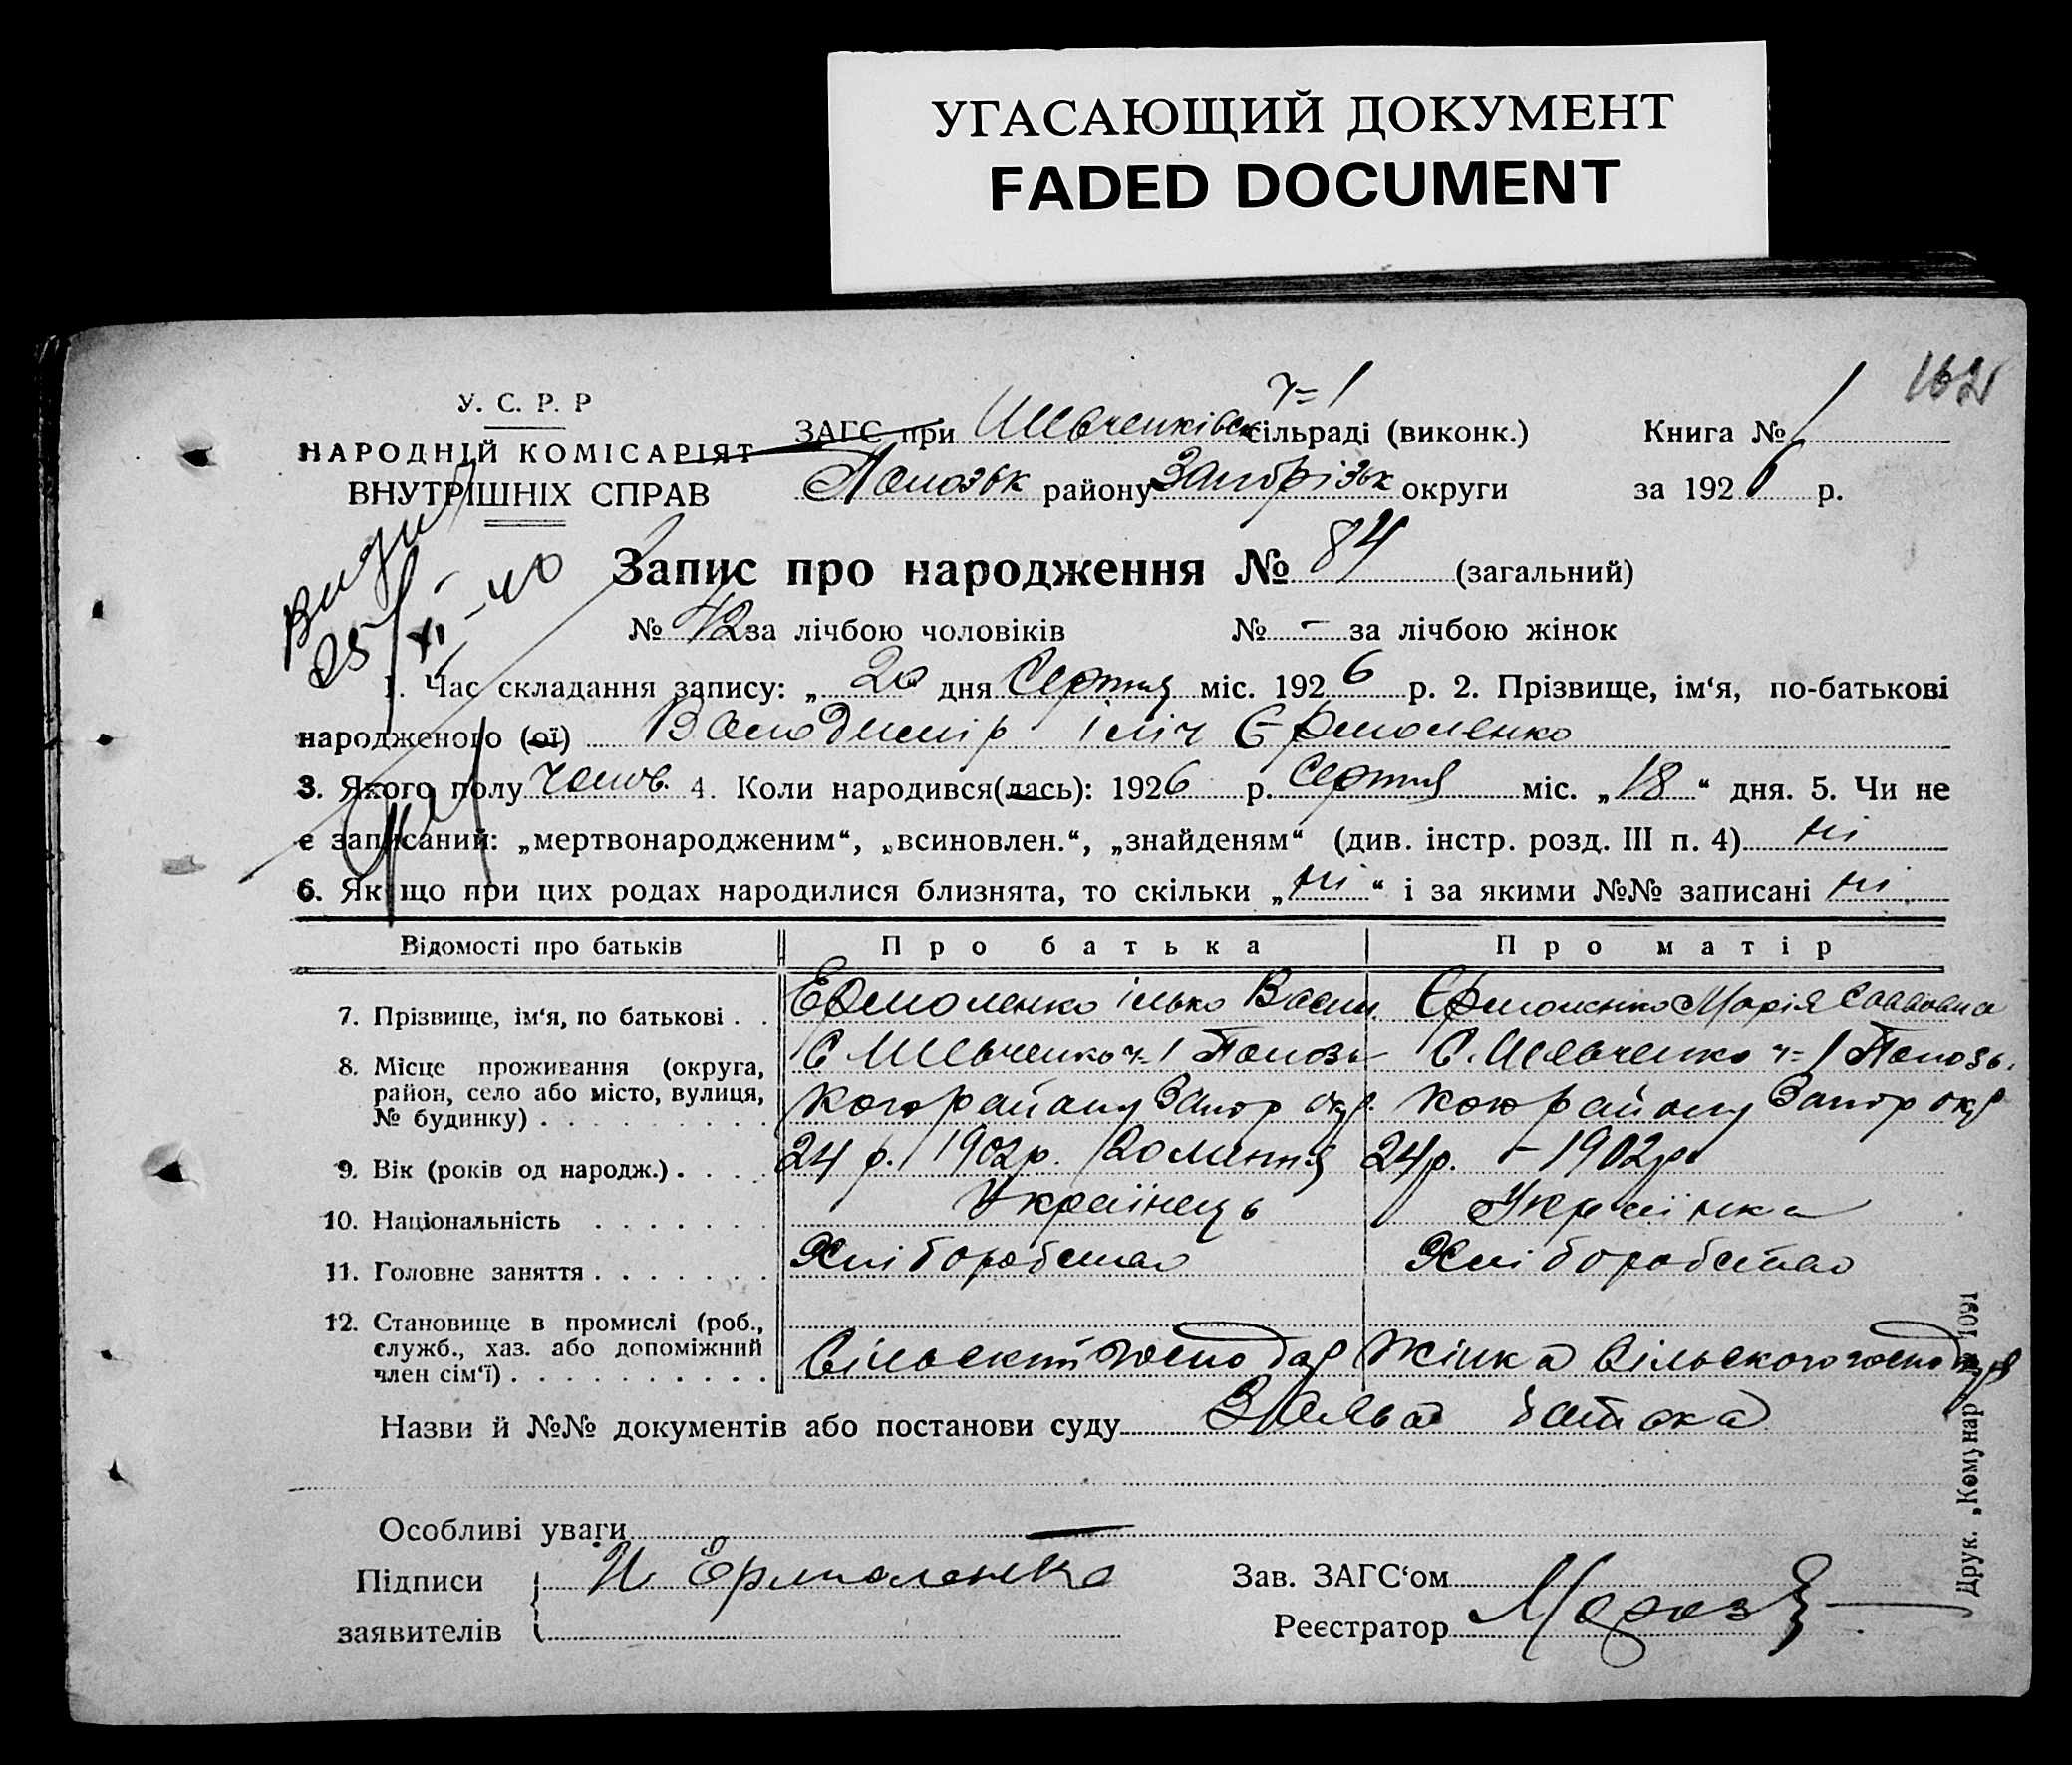 УГАСАЮЩИЙ ДОКУМЕНТ
FADED DOCUMENT
162
У. С. Р. Р
НАРОДНІЙ КОМІСАРІЯТ
ВНУТРІШНІХ СПРАВ
ч=1
ЗАГС при Шевченківск сільраді (виконк.) Книга № 1
Пологзьк району Запорізьк округи за 1926 р.
Видан
25/XI-40
Запис про народження № 84 (загальний)
№ 42 за лічбою чоловіків № - за лічбою жінок
1. Час складання запису: „ 20 дня Серпня міс. 1926 р. 2. Прізвище, ім‘я, по-батькові
народженого (ої) Володимір Ілліч Єрмоленко
3. Якого полу Чолов. 4. Коли народився(лась): 1926 р. Серпня міс. „18“ дня. 5. Чи не
є записаний: „мертвонародженим“, „всиновлен.“, „знайденям“ (див. інстр. розд. III п. 4) ні
6. Якщо при цих родах народилися близнята, то скільки „ні“ і за якими №№ записані ні
Відомості про батьків Про батька Про матір
7. Прізвище, ім‘я, по батькові . . Ермоленко Ілько Васил. Єрмоленко Марія Саввовна
8. Місце проживання (округа, С Шевченко ч=1 Пологзь С. Шевченко ч=1 Пологзь.
район, село або місто, вулиця, кого району Запор окр. кого району Запор окр
№ будинку) . . . . . . . . . .
9. Вік (років од народж.) . . . . 24 р. 1902р. 20 липня 24р. – 1902р.
10. Національність . . . . . . . Українець Українка
11. Головне заняття . . . . . . . Хліборобство Хліборобство
12. Становище в промислі (роб.,
служб., хаз. або допоміжний Сільский господар Жінка Сільского господаря
член сім‘ї) . . . . . . . . . .
Назви й №№ документів або постанови суду Заява батька
Особливі уваги —
Підписи И Ермоленко Зав. ЗАГС‘ом
заявителів Реєстратор Мороз
Друк. „Комунар 1091